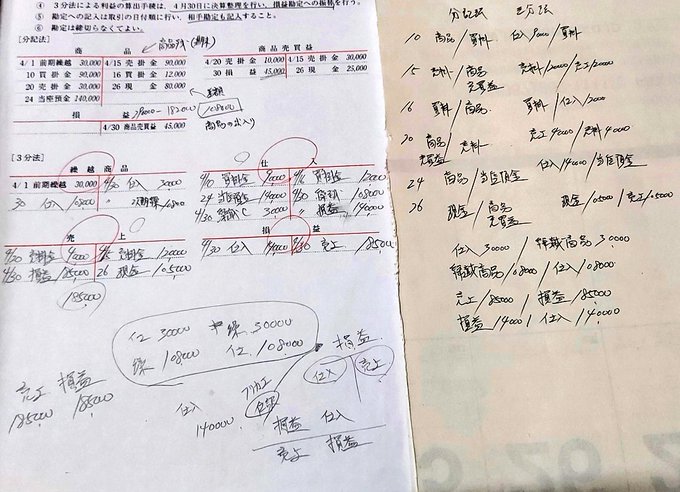 ④ 3分法による利益の算出手続は、4月30日に決算整理を行い、損益勘定への振替を行う。
⑤ 勘定への記入は取引の日付順に行い、相手勘定も記入すること。
⑥ 勘定は締切らなくてよい。
[分記法]
商品
4/1 前期繰越 30,000 4/15 売掛金 90,000
10 買掛金 90,000 4/16 買掛金 12,000
20 売掛金 30,000 26 現金 80,000
24 当座預金 140,000
商品売買益
4/20 売掛金 10,000 4/15 売掛金 30,000
30 損益 45,000 26 現金 25,000
損益
4/30 商品売買益 45,000
182000
108000
商品の出入り
[3分法]
繰越商品
4/1 前期繰越 30,000 4/30 仕入 30000
30 仕入 108000 〃 次期繰 108000
仕入
24 当座預金 140000 4/30 繰商 108000
4/30 繰商 30000 〃 損益 140000
売上
4/20 売掛金 40000 4/15 売掛金 120000
4/30 損益 185000 26 現金 105000
185000
損益
4/30 仕入 140000 4/30 売上 185000
仕 30000 繰 30000
繰 108000 仕 108000
売上 損益
185000 185000
仕入
140000
損益
仕入 売上
損益 仕入
売上 損益
分記法 三分法
10 商品/買掛 仕入 /買掛
15 売掛/商品 売買益 売掛/120000/売上120000
16 買掛/商品 買掛/仕入12000
20 商品 売買益/売掛 売上40000/売掛40000
24 商品/当座預金 仕入140000/当座預金
26 現金/商品 売買益 現金/105000/売上105000
仕入30000/繰越商品30000
繰越商品/108000/仕入108000
売上/185000/損益185000
損益/140000/仕入140000